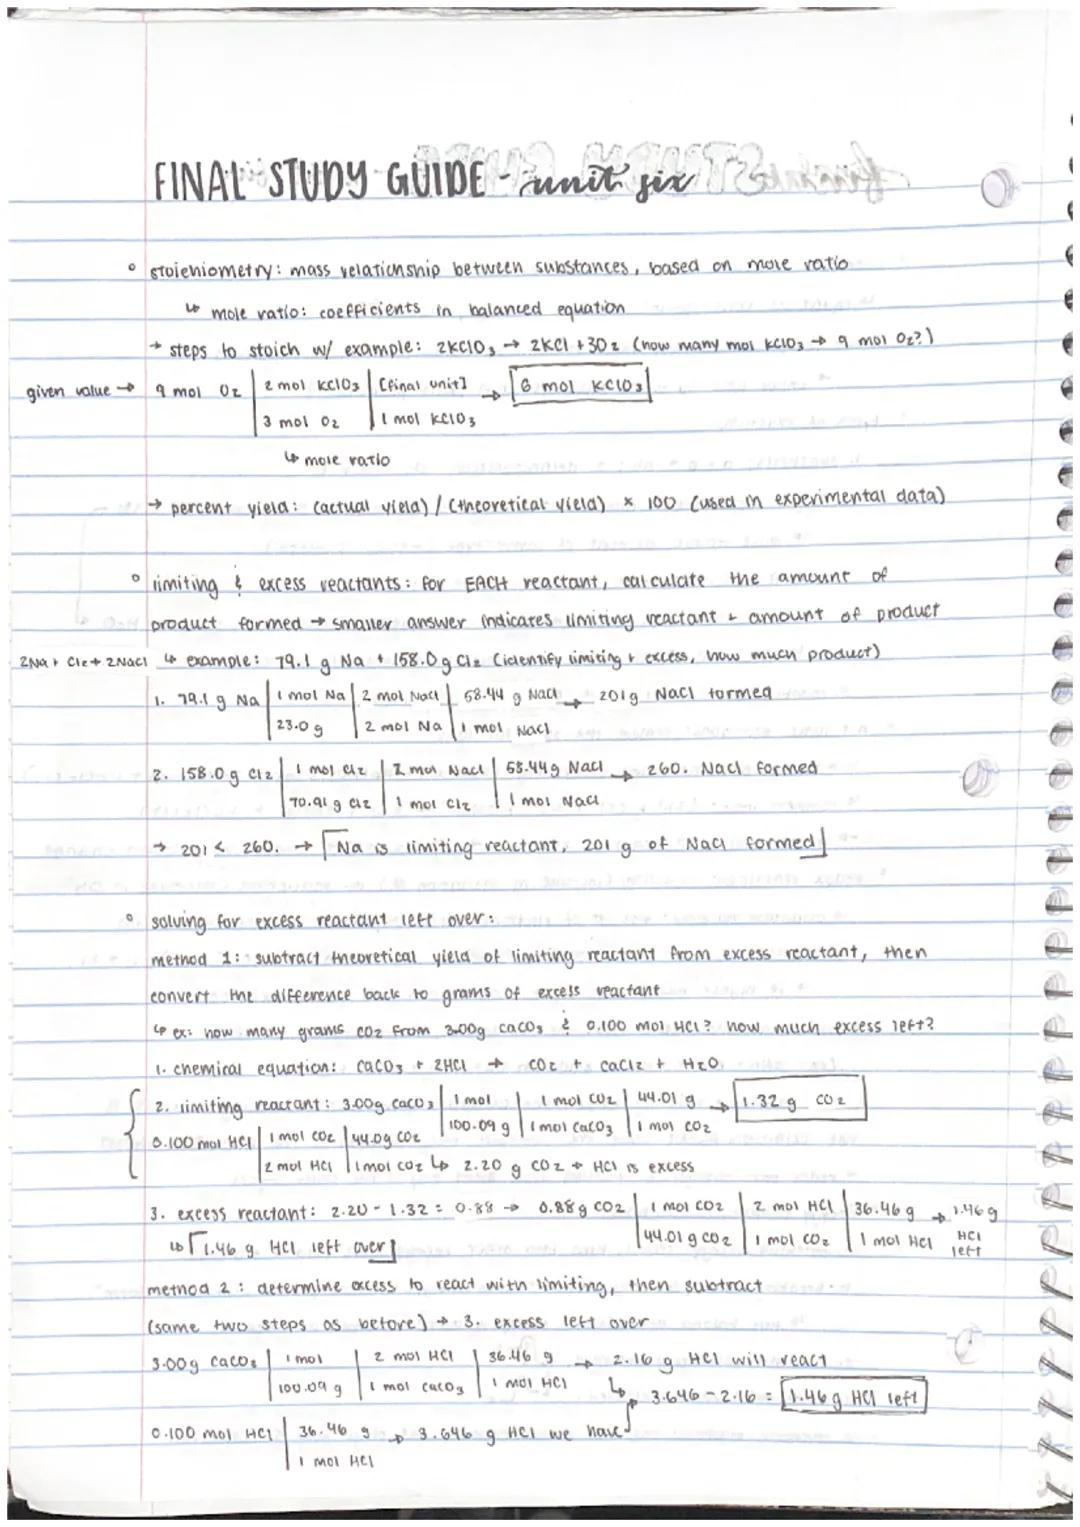 FINAL STUDY GUIDE - unit six
° stoichiometry: mass relationship between substances, based on mole ratio
↳ mole ratio: coefficients in balanced equation
→ steps to stoich w/ example: 2KClO3 → 2KCl + 3O2 (how many mol KClO3 → 9 mol O2?)
given value → 9 mol O2 | 2 mol KClO3 | [final unit] → 6 mol KClO3
3 mol O2 | 1 mol KClO3
↳ mole ratio
→ percent yield: (actual yield) / (theoretical yield) × 100 (used in experimental data)
° limiting & excess reactants: for EACH reactant, calculate the amount of
product formed → smaller answer indicates limiting reactant + amount of product
2Na + Cl2 → 2NaCl ↳ example: 79.1 g Na + 158.0 g Cl2 (identify limiting + excess, how much product)
1. 79.1 g Na | 1 mol Na | 2 mol NaCl | 58.44 g NaCl → 201 g NaCl formed
23.0 g | 2 mol Na | 1 mol NaCl
2. 158.0 g Cl2 | 1 mol Cl2 | 2 mol NaCl | 58.44 g NaCl → 260. NaCl formed
70.91 g Cl2 | 1 mol Cl2 | 1 mol NaCl
→ 201 < 260. → Na is limiting reactant, 201 g of NaCl formed
° solving for excess reactant left over:
method 1: subtract theoretical yield of limiting reactant from excess reactant, then
convert the difference back to grams of excess reactant
↳ ex: how many grams CO2 from 3.00g CaCO3 & 0.100 mol HCl? how much excess left?
1. chemical equation: CaCO3 + 2HCl → CO2 + CaCl2 + H2O
2. limiting reactant: 3.00g CaCO3 | 1 mol | 1 mol CO2 | 44.01 g → 1.32 g CO2
100.09 g | 1 mol CaCO3 | 1 mol CO2
0.100 mol HCl | 1 mol CO2 | 44.0g CO2
2 mol HCl | 1 mol CO2 ↳ 2.20 g CO2 → HCl is excess
3. excess reactant: 2.20 - 1.32 = 0.88 → 0.88g CO2 | 1 mol CO2 | 2 mol HCl | 36.46 g → 1.46 g HCl left
44.01 g CO2 | 1 mol CO2 | 1 mol HCl
↳ 1.46 g HCl left over
method 2: determine excess to react with limiting, then subtract
(same two steps as before) → 3. excess left over
3.00g CaCO3 | 1 mol | 2 mol HCl | 36.46 g → 2.16 g HCl will react
100.09 g | 1 mol CaCO3 | 1 mol HCl
↳ 3.646 - 2.16 = 1.46 g HCl left
0.100 mol HCl | 36.46 g → 3.646 g HCl we have
1 mol HCl